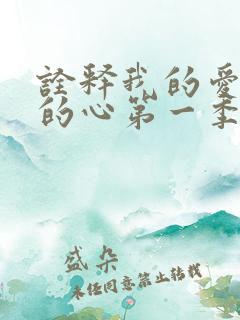 詮释我的愛
的心第一季
盛朵
未经同意禁止转载